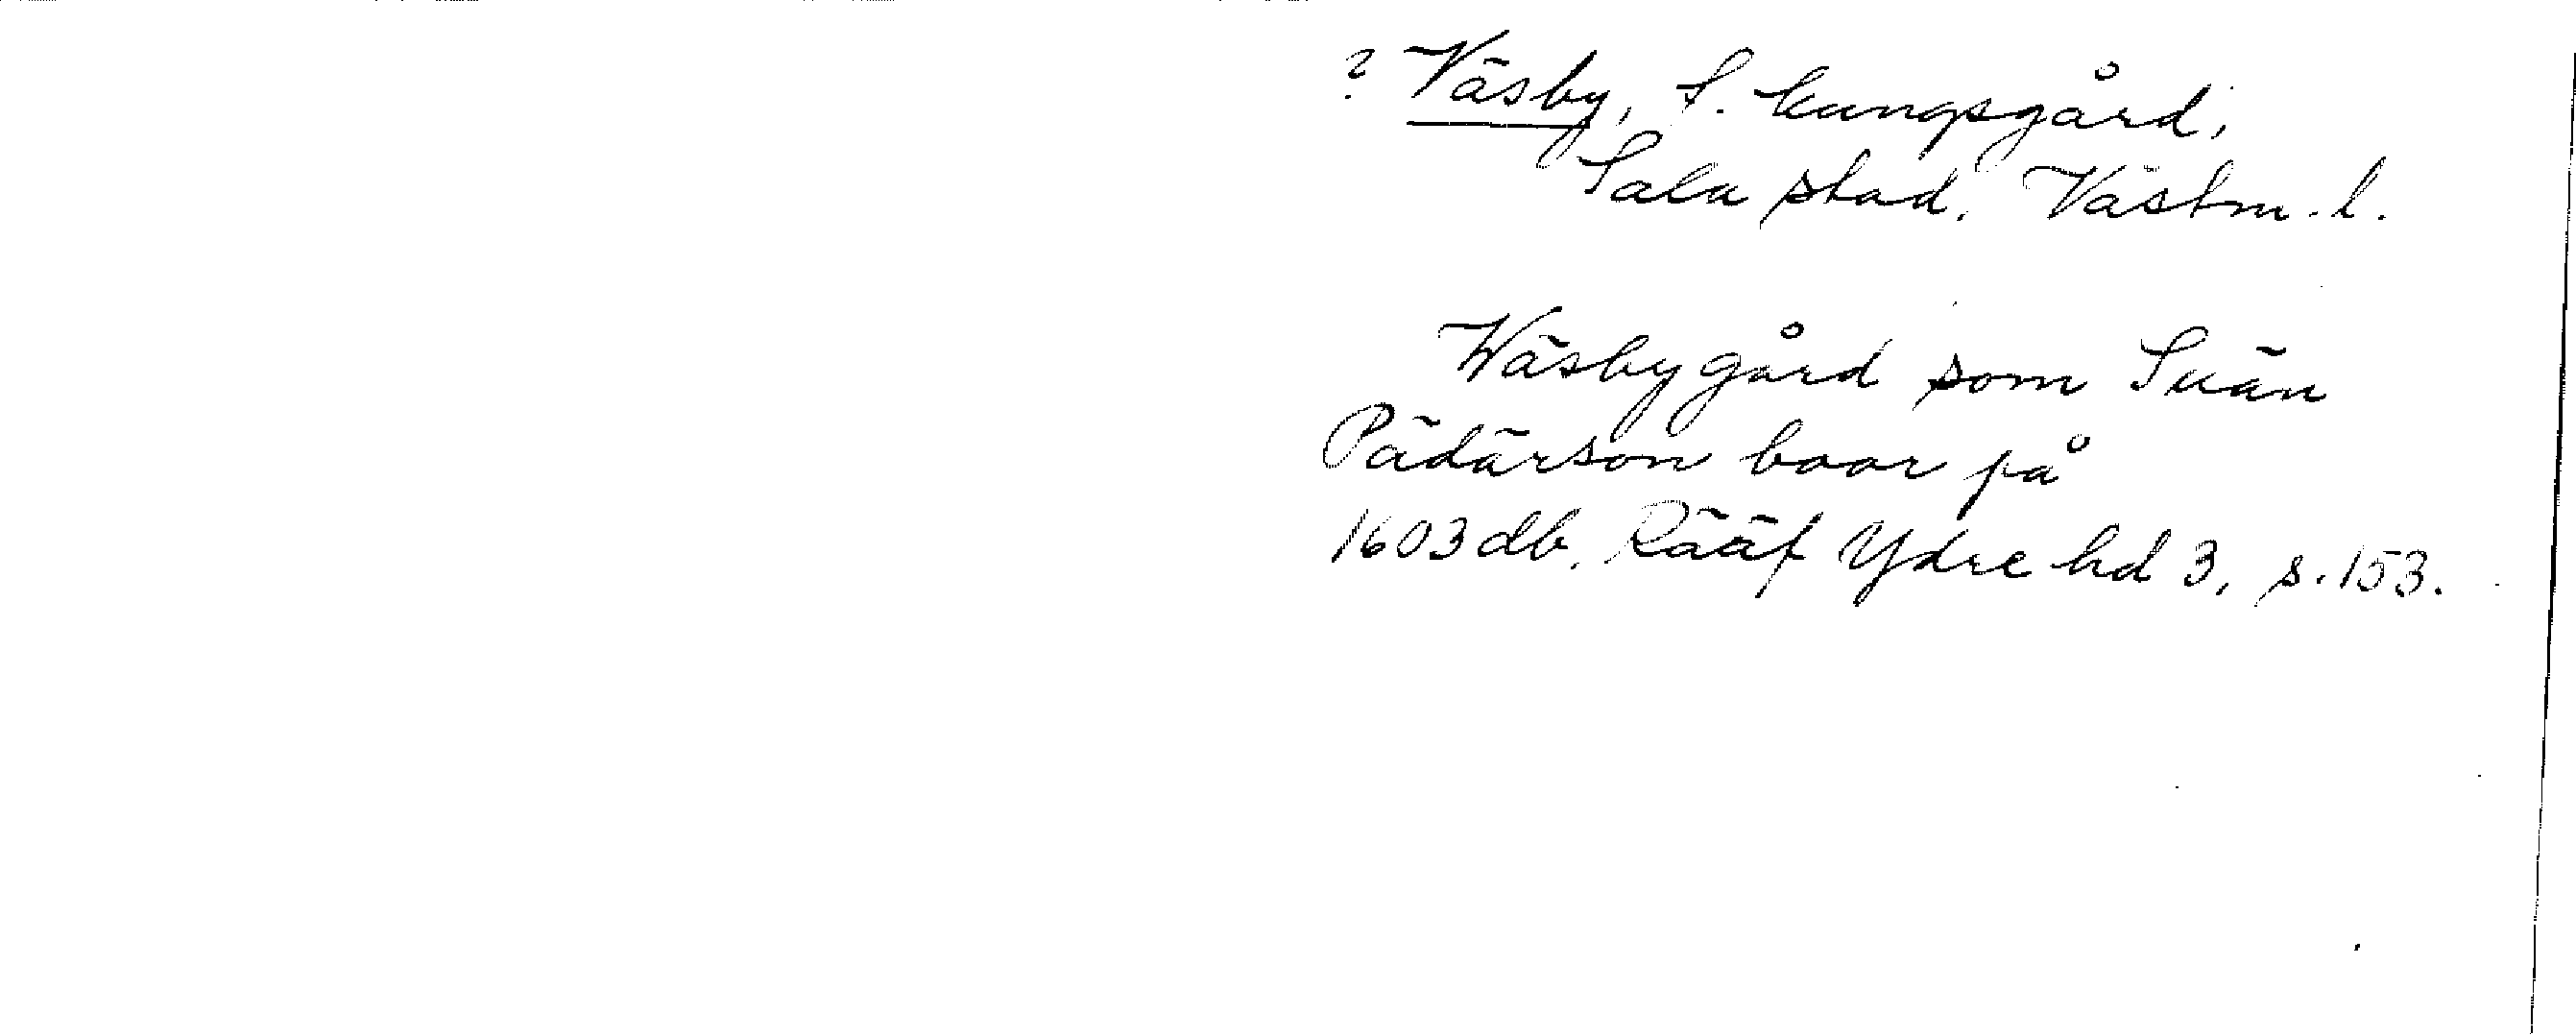 ? Väsby, f. kungsgård,
Sala stad, Västm. l.
Wäsby gård som Suän
Pädärson boor på
1603 db. Rääf Ydre hd 3, s. 153.